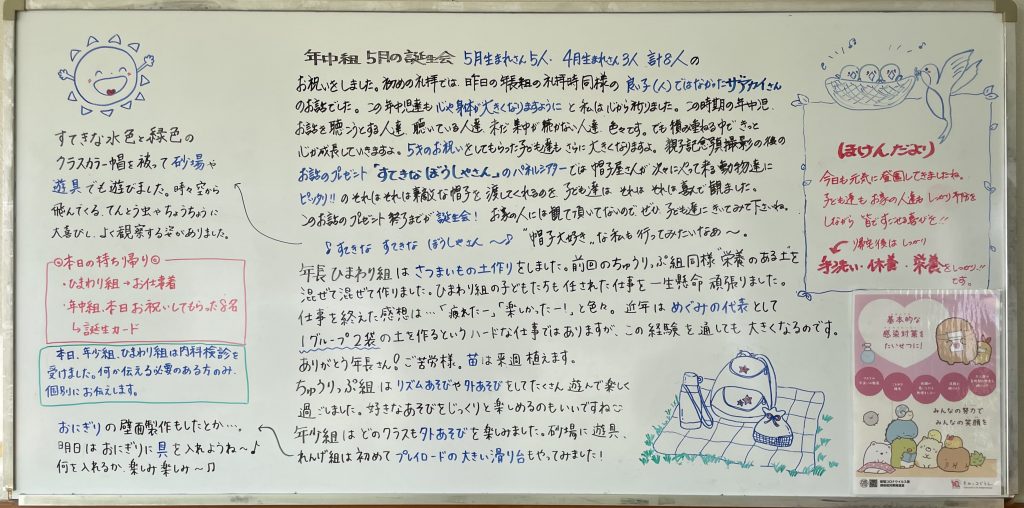 年中組 5月の誕生会 5月生まれさん5人、4月生まれさん3人 計8人の
お祝いをしました。初めの礼拝では、昨日の年長組の礼拝時同様の
のお話でした。この年中児達も心や身体が大きくなりますようにと私は心から祈りました。この時期の年中児、
お話を聴こうとする人達、聴いている人達、未だ集中が続かない人達、色々です。でも積み重ねる中できっと
心が成長していきますよ。5才のお祝いをしてもらった子ども達もさらに大きくなりますよ。親子記念撮影の後の
お話のプレゼント「すてきなぼうしやさん」のパネルシアターでは帽子屋さんが次々に入って来る動物達に
ピッタリ!!のそれはそれは素敵な帽子を渡してくれるのを子ども達はそれはそれは喜んで観ました。
このお話のプレゼント 誕生会! お家の人には観て頂いてないので、ぜひ、子ども達にきいてみて下さいね。
♪すてきな すてきな ぼうしやさん〜♪ "帽子大好き"な私も行ってみたいなぁ〜。
年長ひまわり組はさつまいもの土作りをしました。前回のちゅうりっぷ組同様"栄養のある土"を
混ぜて混ぜて作りました。ひまわり組の子どもたちも任された仕事を一生懸命頑張りました。
仕事を終えた感想は…「疲れたー」「楽しかったー!」と色々。近年はめぐみの代表として
1グループ2袋の土を作るというハードな仕事ではありますが、この経験を通しても大きくなるのです。
ありがとう年長さん!ご苦労様。苗は来週植えます。
ちゅうりっぷ組はリズムあそびや外あそびをしてたくさん遊んで楽しく
過ごしました。好きなあそびをじっくりと楽しめるのもいいですね
年少組はどのクラスも外あそびを楽しみました。砂場に遊具、
れんげ組は初めてプレイロードの大きい滑り台もやってみました!
すてきな水色と緑色の
クラスカラー帽を被って砂場や
遊具でも遊びました。時々空から
飛んでくる、てんとう虫やちょうちょうに
大喜びし、よく観察する姿がありました。
本日の持ち帰り
・ひまわり組→お仕事着
・年中組、本日お祝いしてもらった8名
↳誕生カード
本日、年少組、ひまわり組は内科検診を
受けました。何か伝える必要のある方のみ、
個別にお伝えします。
おにぎりの壁面製作もしたとか…。
明日はおにぎりに具を入れようね〜♪
何を入れるか、楽しみ楽しみ〜♫
ほけんだより
今日も元気に登園してきましたね。
子ども達もお家の人達もしっかり予防を
しながら
帰宅後はしっかり
手洗い・休養・栄養をしっかり!!
です。
基本的な
感染対策を
たいせつに!
みんなの努力で
みんなの笑顔を